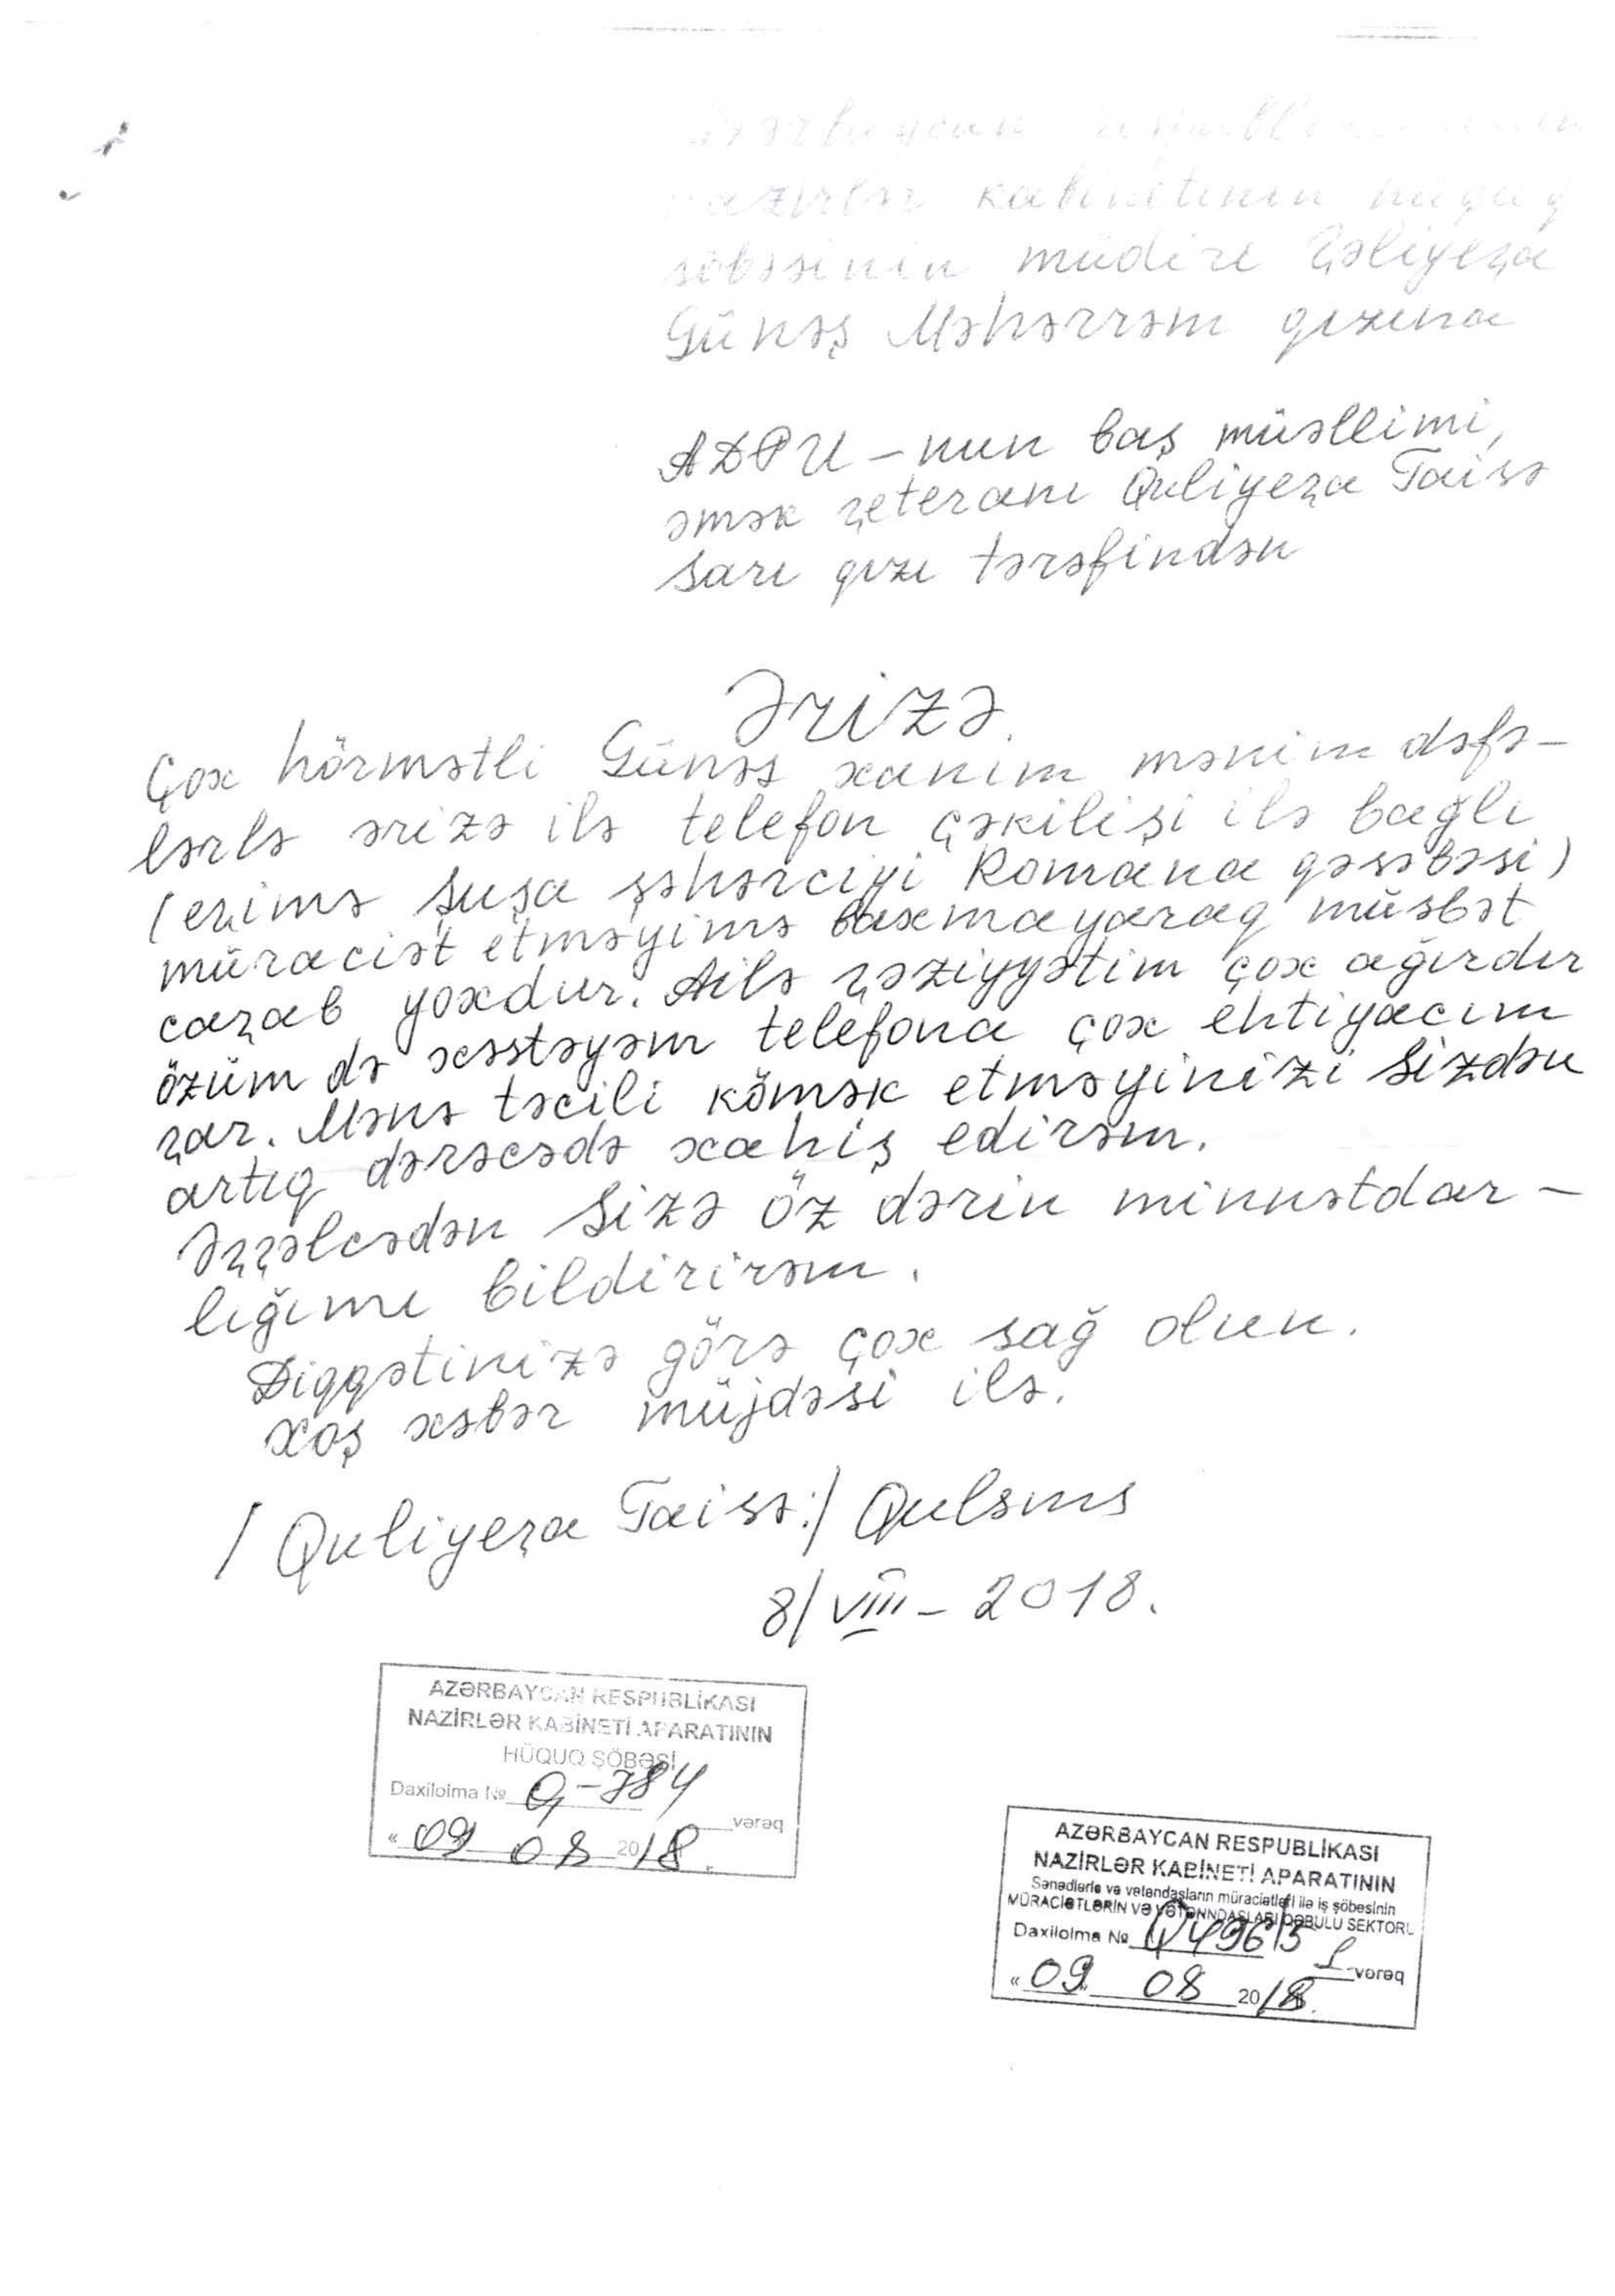 Azərbaycan Respublikasının
nazirlər kabinetinin hüquq
şöbəsinin müdiri Vəliyeva
Günəş Məhərrəm qızına
ADPU-nun baş müəllimi,
əmək veteranı Quliyeva Taisə
Sarı qızı tərəfindən
Ərizə.
Çox hörmətli Günəş xanım mənim dəfə-
lərlə ərizə ilə telefon çəkilişi ilə bağlı
(evimə Şuşa şəhərciyi Romana qəsəbəsi)
müraciət etməyimə baxmayaraq müsbət
cavab yoxdur. Ailə vəziyyətim çox ağırdır
özüm də xəstəyəm telefona çox ehtiyacım
var. Mənə təcili kömək etməyinizi Sizdən
artıq dərəcədə xahiş edirəm.
Əvvəlcədən Sizə öz dərin minnətdar-
lığımı bildirirəm.
Diqqətinizə görə çox sağ olun.
Xoş xəbər müjdəsi ilə.
/Quliyeva Taisə:/
8/VIII-2018.
AZƏRBAYCAN RESPUBLİKASI
NAZİRLƏR KABİNETİ APARATININ
HÜQUQ ŞÖBƏSİ
Daxilolma № Q-784
vərəq
« 09 08 2018
AZƏRBAYCAN RESPUBLİKASI
NAZİRLƏR KABİNETİ APARATININ
Sənədlərlə və vətəndaşların müraciətləri ilə iş şöbəsinin
MÜRACİƏTLƏRİN VƏ VƏTƏNNDAŞLARI QƏBULU SEKTORU
Daxilolma №
vərəq
« 09 » 08 2018.